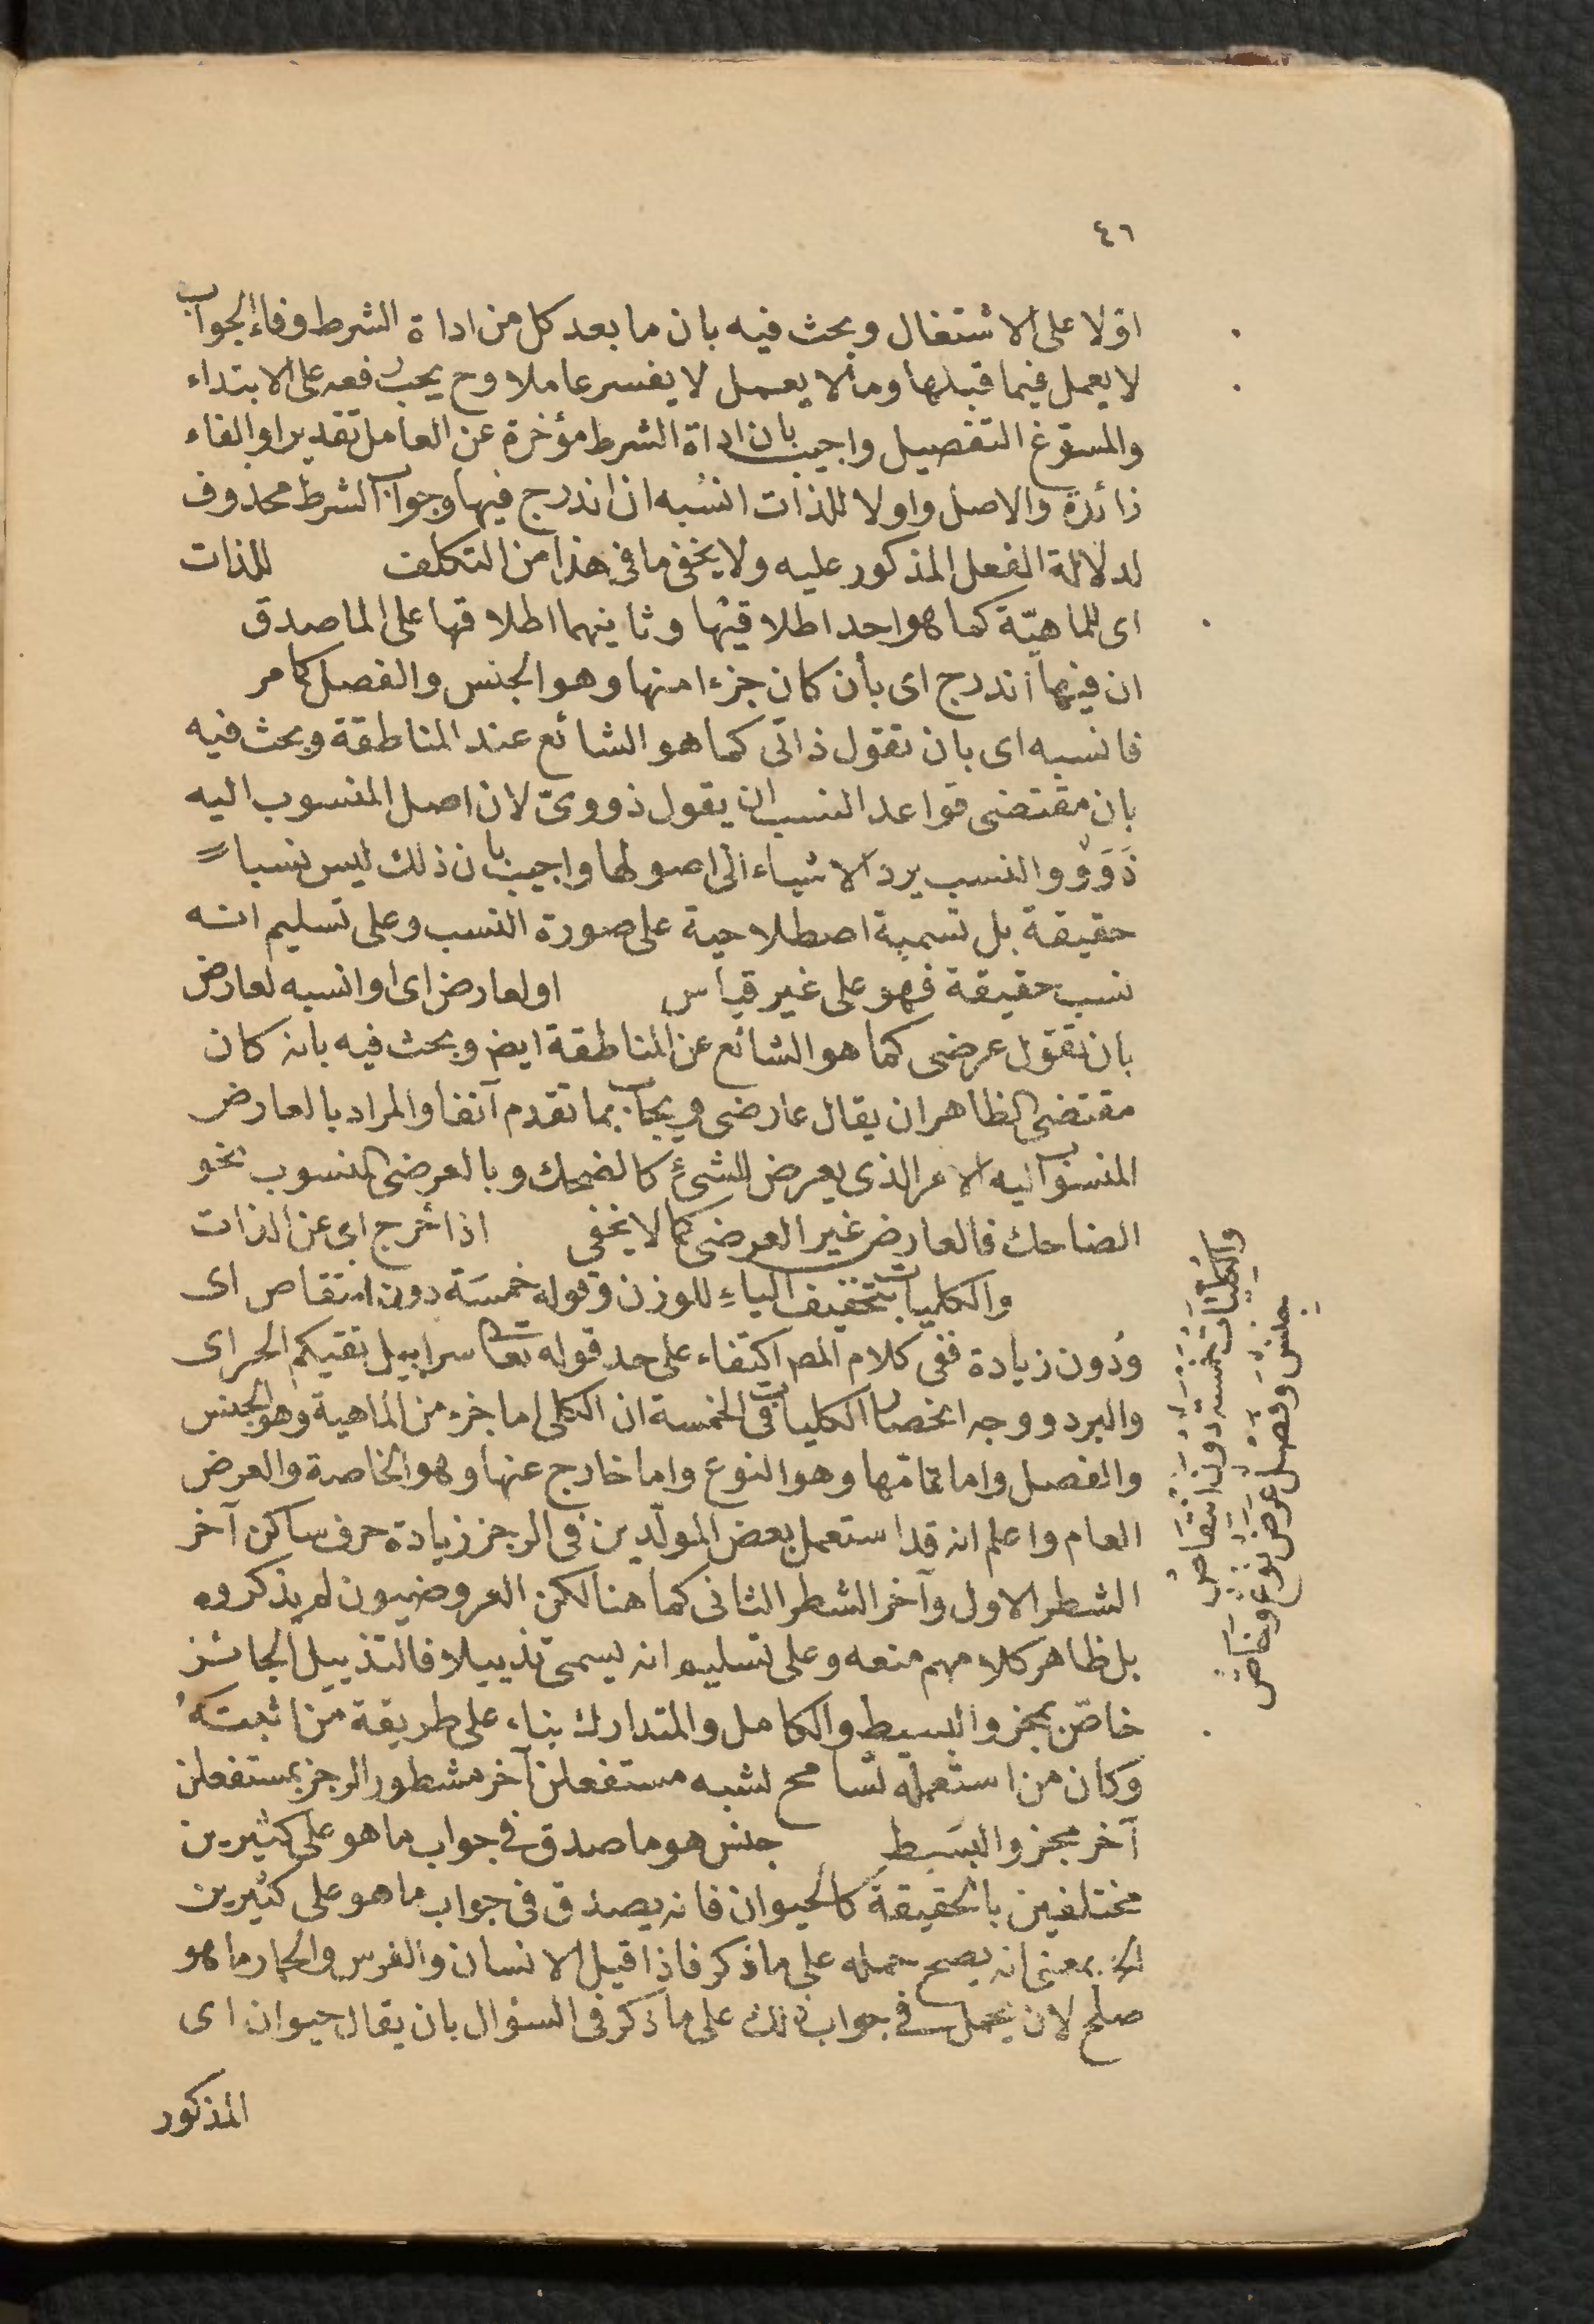 ٤٦
اوّلا على الاشتغال وبحث فيه بان ما بعد كل من اداة الشرط وفاء الجواب
لا يعمل فيما قبلها وما لا يعمل لا يفسر عاملا وح يجب رفعه على الابتداء
والمسوّغ التفصيل واجيب بان اداة الشرط مؤخرة عن العامل تقديرا والفاء
زائدة والاصل واولا للذات انسبه ان اندرج فيها وجواب الشرط محذوف
لدلالة الفعل المذكور عليه ولا يخفى ما فى هذا من التكلف للذات
اى للماهيّة كما هو احد اطلاقيها وثانيهما اطلاقها على الماصدق
ان فيها اندرج اى بأن كان جزءا منها وهو الجنس والفصل كما مر
فانسبه اى بان تقول ذاتى كما هو الشائع عند المناطقة وبحث فيه
بان مقتضى قواعد النسب ان يقول ذووىّ لان اصل المنسوب اليه
ذَوَوٌ والنسب يرد الاشياء الى اصولها واجيب بان ذلك ليس نسبا
حقيقة بل تسمية اصطلاحية على صورة النسب وعلى تسليم انه
نسب حقيقة فهو على غير قياس او لعارض اى او انسبه لعارض
بان تقول عرضى كما هو الشائع عن المناطقة ايضا وبحث فيه بانه كان
مقتضى الظاهر ان يقال عارضى ويجاب بما تقدم آنفا والمراد بالعارض
المنسوب اليه الامر الذى يعرض للشئ كالضحك وبالعرضى المنسوب نحو
الضاحك فالعارض غير العرضى كما لا يخفى اذا خرج اى عن الذات
والكليات بتخفيف الياء للوزن وقوله خمسَة دون انتقاص اى
ودُون زيادة ففى كلام المص اكتفاء على حد قوله تعا سرابيل تقيكم الحر اى
والبرد ووجه انحصار الكليات فى الخمسة ان الكلى اما جزء من الماهية وهو الجنس
والفصل واما تمامها وهو النوع واما خارج عنها وهو الخاصة والعرض
العام واعلم انه قد استعمل بعض المولّدين فى الرجز زيادة حرف ساكن آخر
الشطر الاول وآخر الشطر الثانى كما هنا لكن العروضيون لم يذكروه
بل ظاهر كلامهم منعه وعلى تسليم انه يسمى تذييلا فالتذييل الجائز
خاصّ بمجزو البسيط والكامل والمتدارك بناء على طريقة من اثبتَهُ
وكان من استعمله تسامح لشبه مستفعلن آخر مشطور الرجز بمستفعلن
آخر مجزو البسَيط جنس هو ما صدق فى جواب ما هو على كثيرين
مختلفين بالحقيقة كالحيوان فانه يصدق فى جواب ما هو على كثيرين
الخ بمعنى انه يصح حمله على ما ذكر فاذا قيل الانسان والفرس والحمار ما هو
صلح لان يحمل فى جواب ذلك على ما ذكر فى السؤال بان يقال حيوان اى
المذكور
والكليات خمسة دون انتقاص
جنس وفصل عرض نوع وخاص